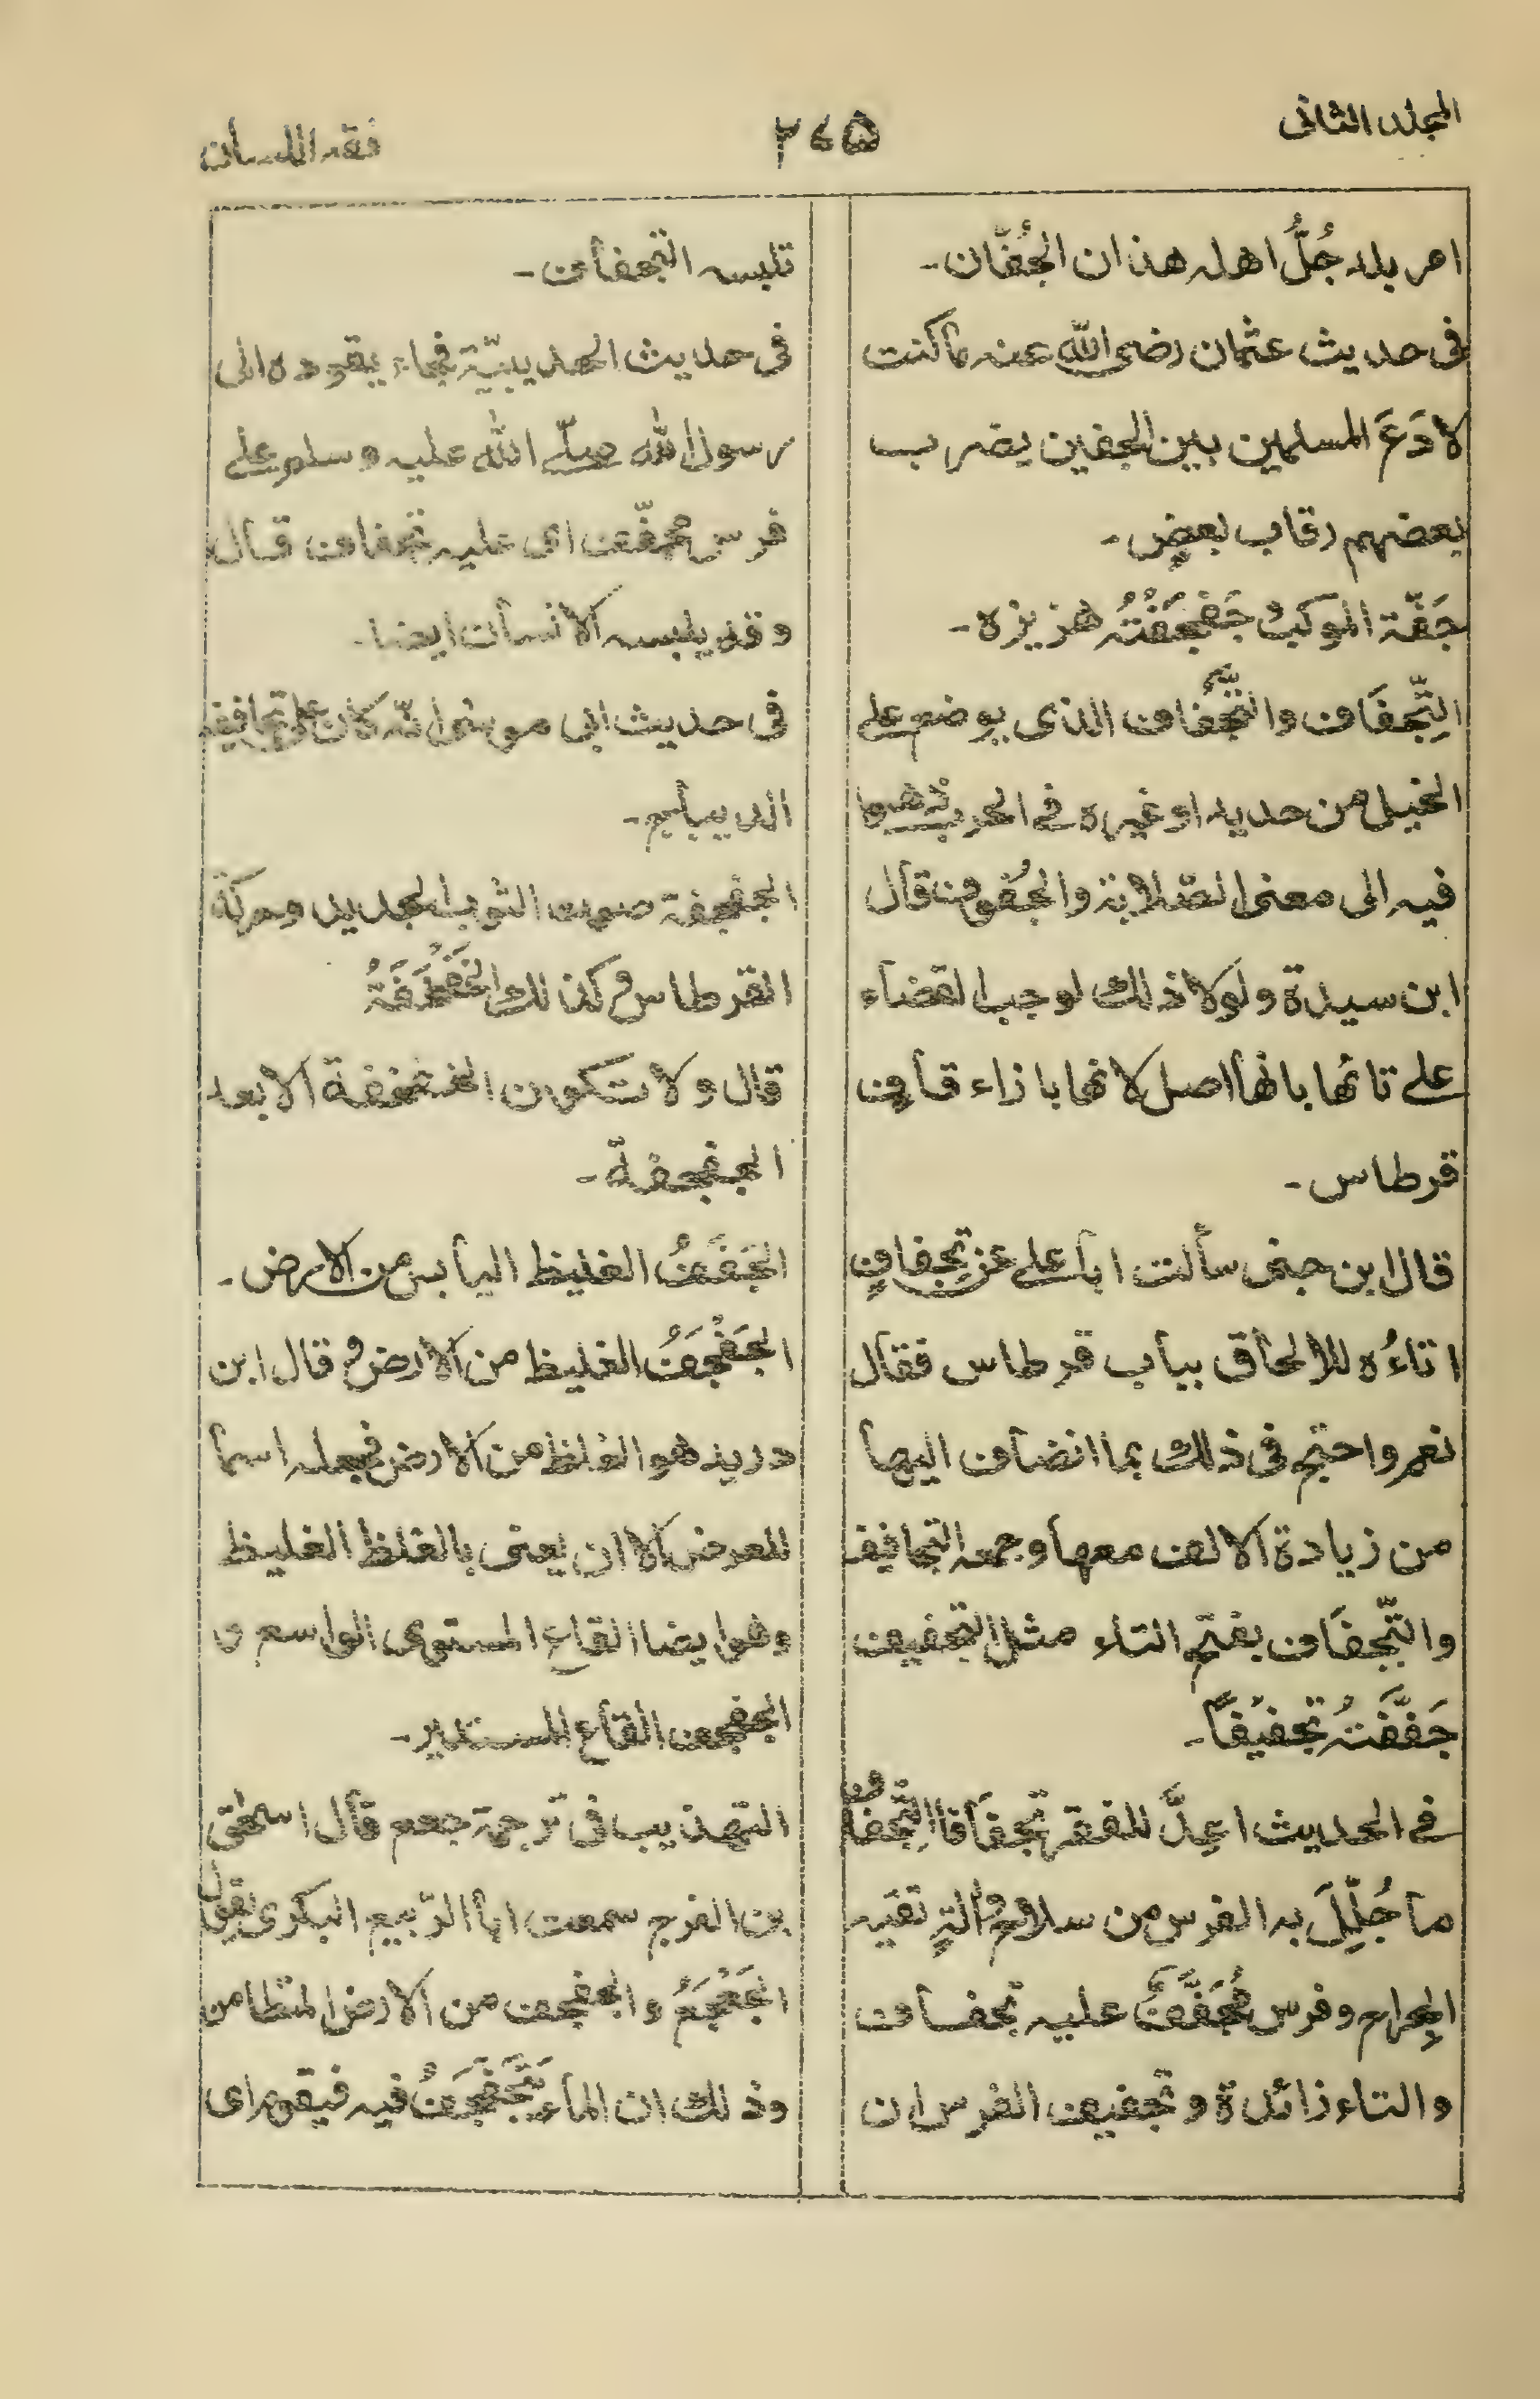 المجلد الثانى
٢٦٥
فقه اللسان
امر بلد جُلُّ اهله هذان الجُفّان۔
فى حديث عثمان رضى الله عنه ما كنت
لادَعَ المسلمين بين الجفين يضرب
بعضهم رقاب بعضٍ۔
جَفّة الموكب جَفْجَفَتُه هزيزه۔
التِّجفَاف والتَّجْفَاف الذى يوضع على
الخيل من حديد او غيره فى الحرب ذهبوا
فيه الى معنى الصّلابة والجُفوف قال
ابن سيدة ولولا ذلك لوجب القضاء
على تائها بانها اصل لانها بازاء قافِ
قرطاس۔
قال ابن جنى سألت ابا على عن تِجفافٍ
اتاءُه للالحاق بباب قرطاس فقال
نعم واحتج فى ذلك بما انضاف اليها
من زيادة الالف معها وجمعه التجافيف
والتَّجفَاف بفتح التاء مثل التجفيف
جَفَّفْتُه تجفيفاً۔
فى الحديث اعِدَّ للفقر تجفَافا التِّجفافُ
ما جُلِّلَ به الفرس من سلاح وآلةٍ تقيه
الجِراح وفرس مُجَفَّفٌ عليه تجفاف
والتاء زائدة وتجفيف الفرس ان
تلبسه التجفاف۔
فى حديث الحديبيّة فجاء يقوده الى
رسول الله صلّے الله عليه وسلم على
فرس مجفّف اى عليه تجفاف قال
وقد يلبسه الانسان ايضا۔
فى حديث ابى موسٰى انه كان على تجافيفه
الديباج۔
الجفجفة صوت الثوب الجديد وحركة
القرطاس وكذلك الخَفْخَفَةُ
قال ولا تكون الخفخفة الا بعد
الجفجفة۔
الجَفَفُ الغليظ اليابس من الارض۔
الجَفْجَفُ الغليظ من الارض وقال ابن
دريد هو الغلظ من الارض فجعله اسما
للعرض الا ان يعنى بالغلظ الغليظ
وهو ايضا القاع المستوى الواسع و
الجفجف القاع المستدير۔
التهذيب فى ترجمة جعع قال اسحٰق
بن الفرج سمعت ابا الرّبيع البكرى يقول
الجَعْجَعُ والجفجف من الارض المتطامن
وذلك ان الماء يَتَجَفْجَفُ فيه فيقوم اى